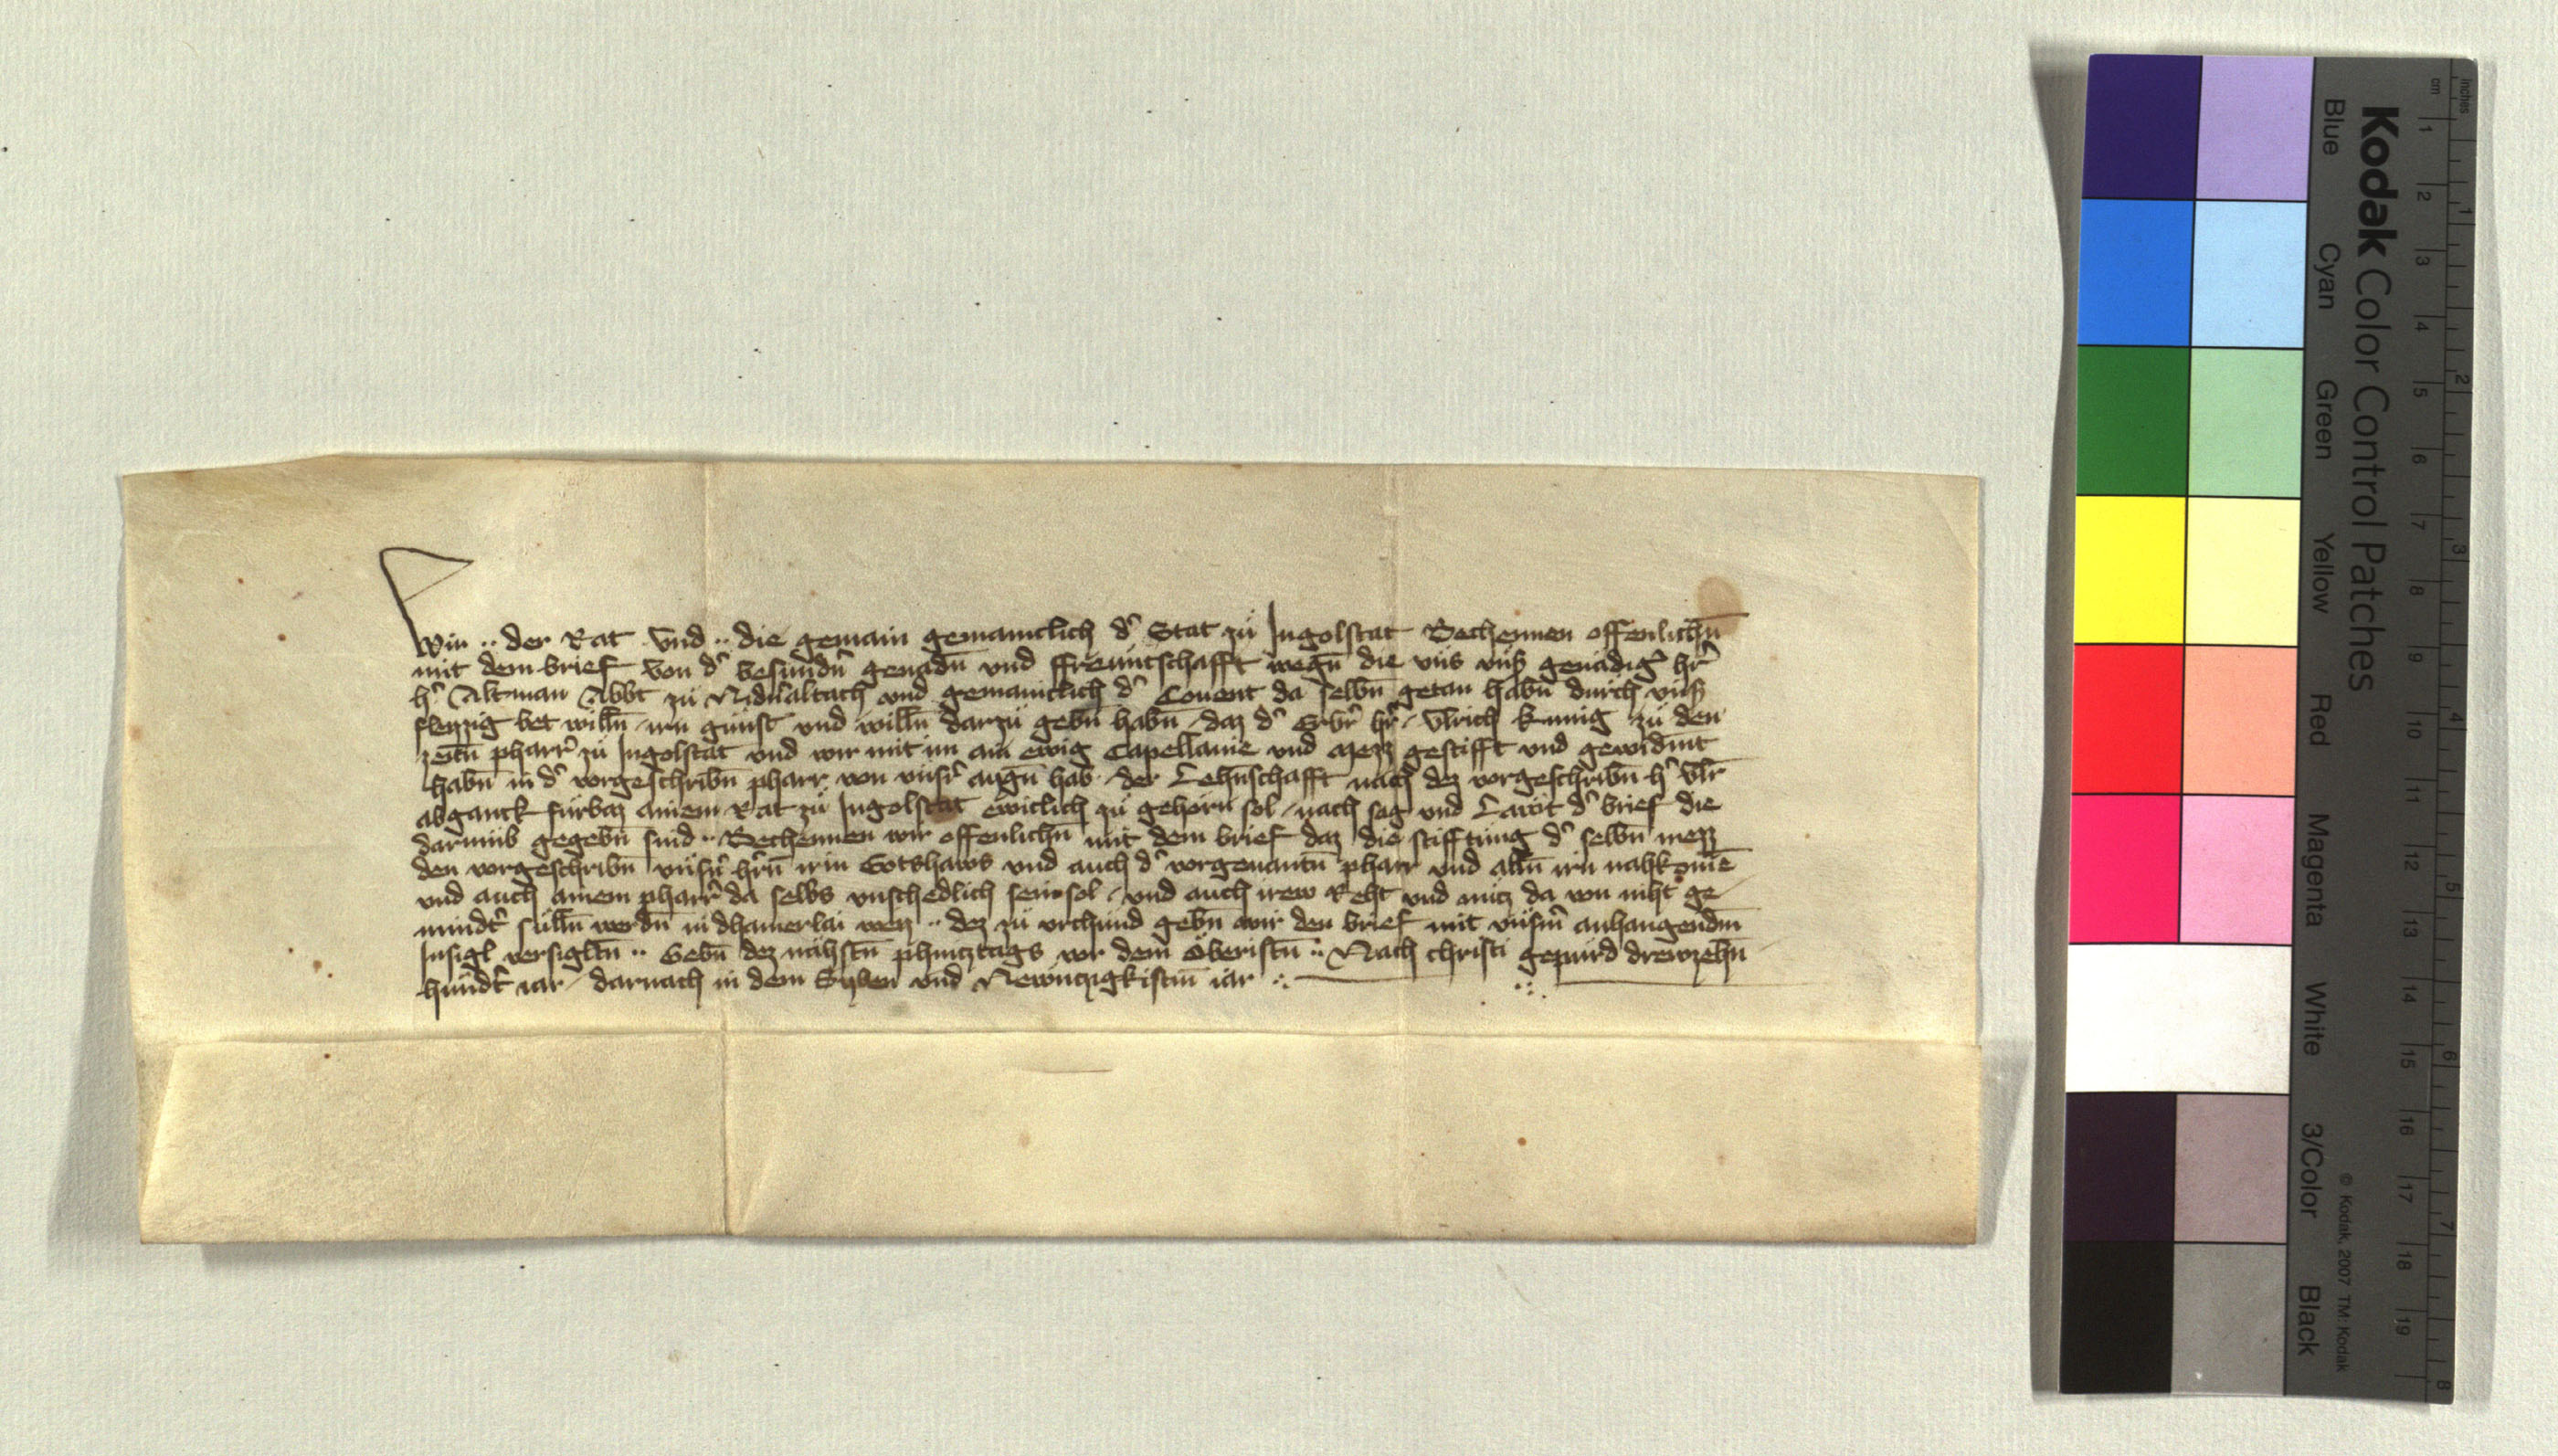 Wir ·· der Rat Vnd ·· die gemain gemainclich d' Stat zů Ingolstat Bechennen offenlichn̄
mit dem brief von d' besundn̄ genadn̄ vnd ffreuntschafft wegn̄ die vns vns' genädig' hr̄
h' Altman Abbt zů Nidn̄altach vnd gemainclich d' Conent da selbn̄ getan habn̄ durch vns'
fleyzzig bet willn̄ irn gunst vnd willn̄ darzů gebn̄ habn̄ / daz d' Erbr̄ hr̄ / Vlrich kunig zů den
zeitn̄ pharr' zů Ingolstat vnd wir mit im ain ewig Capellanie vnd Mezz gestifft vnd gewidmt
habn̄ in d' vorgeschribn̄ pharr von vnsr' aygn̄ hab / der Lehn̄schafft nach dez vorgeschribn̄ h' Vlr̄
abganck fürbaz ainem Rat zů Ingolstat ewiclich zů gehörn sol / nach sag vnd Lawt d' brief die
darumb gegebn̄ sind ·· Bechennen wir offenlichn̄ mit dem brief daz die stifftung d' selbn̄ mezz
den vorgeschribn̄ vnsn̄ hr̄n̄ irm Gotshaws vnd auch d' vorgenantn̄ pharr vnd alln̄ irn nahkomē
vnd auch ainem pharr' da selbs vnschedlich sein sol / vnd auch irew Reht vnd nutz da von niht ge
mindt' sülln̄ werdn̄ in dhainerlai weiz ·· dez zů vrchund gebn̄ wir den brief mit vnsm̄ anhangendm
Insigl versigltn̄ ·· Gebn̄ dez nähstn̄ phintztags vor dem Oberistn̄ ·· Nach christi gepurd drewzehn̄
hundt' iar / darnach in dem Syben vnd Newntzigkistm̄ iar ·:
Kodak Color Control Patches
Blue Cyan Green Yellow Red Magenta White 3/Color Black
© Kodak, 2007 TM: Kodak
inches 1 2 3 4 5 6 7 8
cm 1 2 3 4 5 6 7 8 9 10 11 12 13 14 15 16 17 18 19